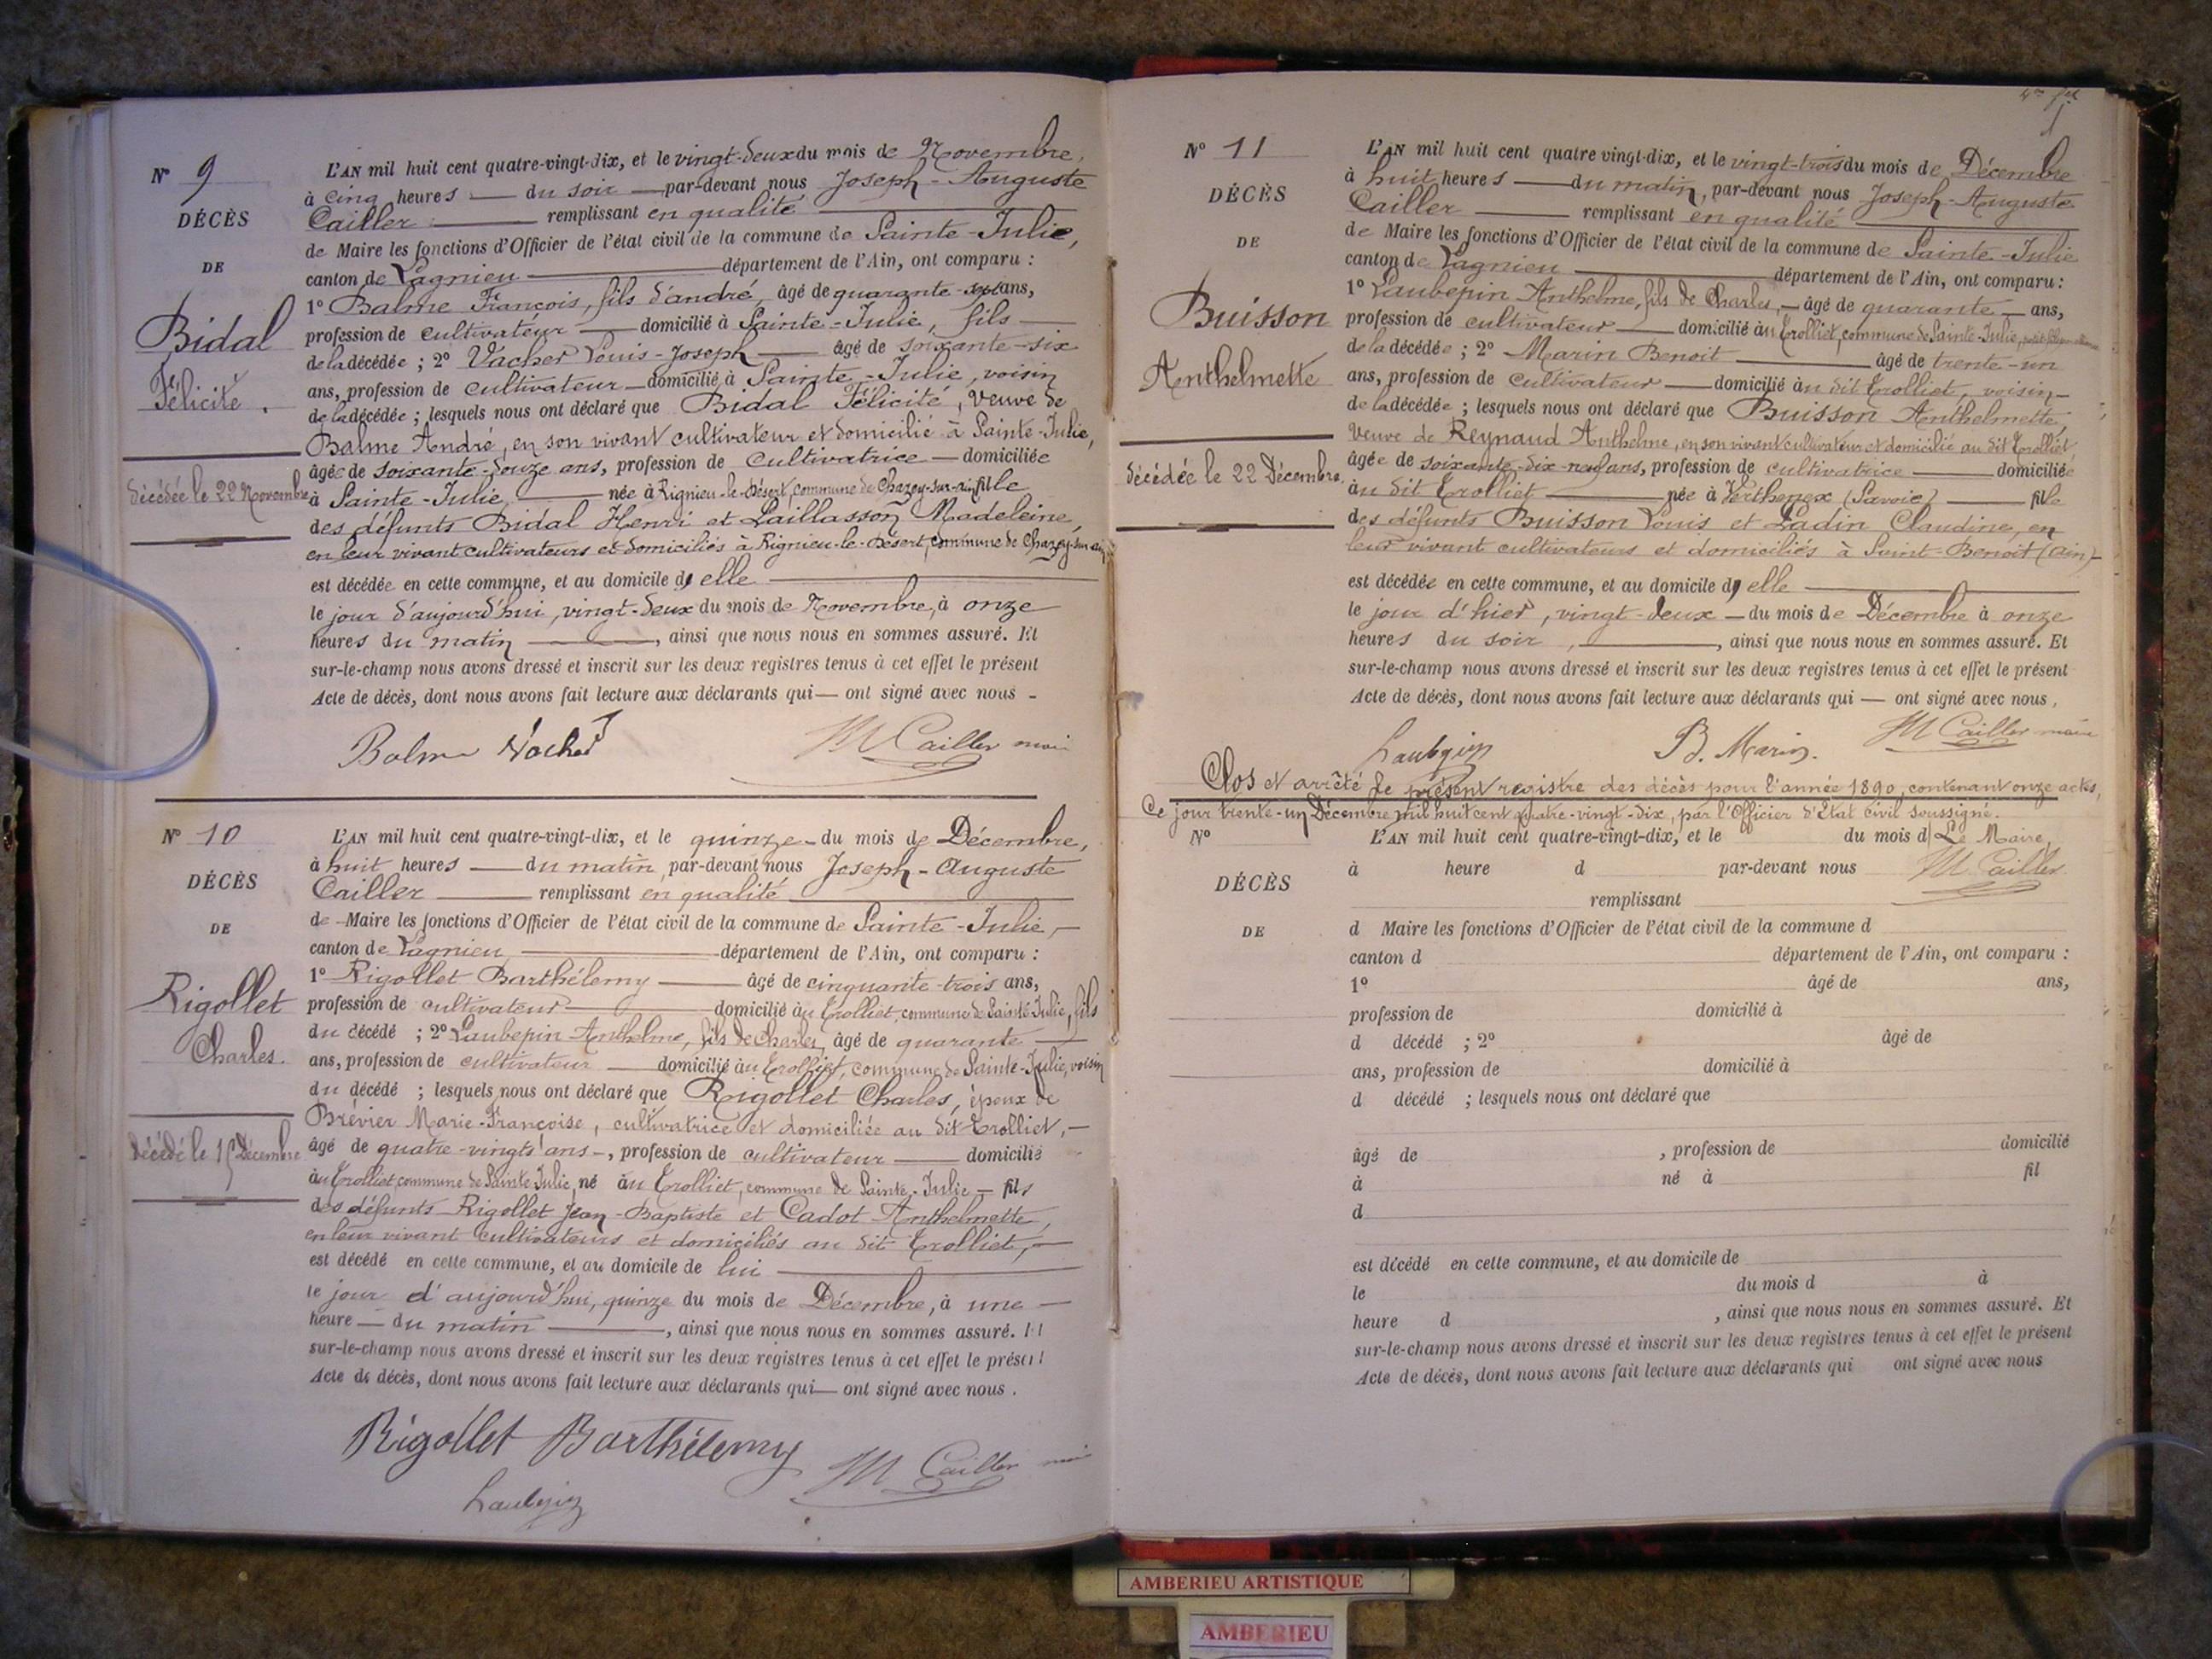 N° 9
DÉCÈS
DE
Bidal
Félicité.
décédée le 22 Novembre
L'AN mil huit cent quatre-vingt-dix, et le vingt-deux du mois de Novembre,
à cinq heures — du soir — par-devant nous Joseph-Auguste
Cailler — remplissant en qualité —
de Maire les fonctions d'Officier de l'état civil de la commune de Sainte-Julie,
canton de Lagnieu — département de l'Ain, ont comparu :
1° Balme François, fils d'andré, âgé de quarante-six ans,
profession de cultivateur — domicilié à Sainte-Julie, fils —
de la décédée ; 2° Vacher Louis-Joseph — âgé de soixante-six
ans, profession de cultivateur — domicilié à Sainte-Julie, voisin
de la décédée ; lesquels nous ont déclaré que Bidal Félicité, veuve de
Balme André, en son vivant cultivateur et domicilié à Sainte-Julie,
âgée de soixante-douze ans, profession de cultivatrice — domiciliée
à Sainte-Julie, — née à Rignieu-le-Désert, commune de Chazey-sur-ain fille
des défunts Bidal Henri et Paillasson Madeleine,
en leur vivant cultivateurs et domiciliés à Rignieu-le-Désert, commune de Chazey-sur-ain
est décédée en cette commune, et au domicile d'elle —
le jour d'aujourd'hui, vingt-deux du mois de Novembre, à onze
heures du matin —, ainsi que nous nous en sommes assuré. Et
sur-le-champ nous avons dressé et inscrit sur les deux registres tenus à cet effet le présent
Acte de décès, dont nous avons fait lecture aux déclarants qui — ont signé avec nous -
Balme Vacher Cailler maire
N° 10
DÉCÈS
DE
Rigollet
Charles.
décédé le 15 Décembre
L'AN mil huit cent quatre-vingt-dix, et le quinze - du mois de Décembre,
à huit heures — du matin, par-devant nous Joseph-Auguste
Cailler — remplissant en qualité —
de Maire les fonctions d'Officier de l'état civil de la commune de Sainte-Julie, —
canton de Lagnieu — département de l'Ain, ont comparu :
1° Rigollet Barthélemy — âgé de cinquante-trois ans,
profession de cultivateur — domicilié au Trolliet, commune de Sainte-Julie, fils
du décédé ; 2° Laubepin Anthelme, fils de Charles, âgé de quarante —
ans, profession de cultivateur — domicilié au Trolliet, commune de Sainte-Julie, voisin
du décédé ; lesquels nous ont déclaré que Rigollet Charles, époux de
Brévier Marie-Françoise, cultivatrice et domiciliée au dit Trolliet, —
âgé de quatre-vingts ans -, profession de cultivateur — domicilié
au Trolliet, commune de Sainte Julie, né au Trolliet, commune de Sainte-Julie — fils
des défunts Rigollet Jean-Baptiste et Cadot Anthelmette,
en leur vivant cultivateurs et domiciliés au dit Trolliet, —
est décédé en cette commune, et au domicile de lui —
le jour d'aujourd'hui, quinze du mois de Décembre, à une —
heure — du matin —, ainsi que nous nous en sommes assuré. Et
sur-le-champ nous avons dressé et inscrit sur les deux registres tenus à cet effet le présent
Acte de décès, dont nous avons fait lecture aux déclarants qui — ont signé avec nous.
Rigollet Barthélemy Cailler
Laubepin
N° 11
DÉCÈS
DE
Buisson
Anthelmette
décédée le 22 Décembre,
L'AN mil huit cent quatre vingt-dix, et le vingt-trois du mois de Décembre
à huit heures — du matin, par-devant nous Joseph-Auguste
Cailler — remplissant en qualité —
de Maire les fonctions d'Officier de l'état civil de la commune de Sainte-Julie
canton de Lagnieu — département de l'Ain, ont comparu :
1° Laubepin Anthelme, fils de Charles, — âgé de quarante — ans,
profession de cultivateur — domicilié au Trolliet, commune de Sainte-Julie,
de la décédée ; 2° Marin Benoit — âgé de trente-un
ans, profession de cultivateur — domicilié au dit Trolliet, voisin —
de la décédée ; lesquels nous ont déclaré que Buisson Anthelmette,
Veuve de Reynaud Anthelme, en son vivant cultivateur et domicilié au dit Trolliet
âgée de soixante-dix-neuf ans, profession de cultivatrice — domiciliée
au dit Trolliet — née à Verthenex (Savoie) — fille
des défunts Buisson Louis et Ladin Claudine, en
leur vivant cultivateurs et domiciliés à Saint-Benoit (ain) -
est décédée en cette commune, et au domicile d'elle —
le jour d'hier, vingt-deux — du mois de Décembre à onze
heures du soir, —, ainsi que nous nous en sommes assuré. Et
sur-le-champ nous avons dressé et inscrit sur les deux registres tenus à cet effet le présent
Acte de décès, dont nous avons fait lecture aux déclarants qui — ont signé avec nous,
Laubepin B. Marin. Cailler maire
Clos et arrêté le présent registre des décès pour l'année 1890, contenant onze actes,
Ce jour trente-un Décembre mil huit cent quatre-vingt-dix, par l'Officier d'Etat civil soussigné.
Le Maire,
Cailler
N°
DÉCÈS
DE
L'AN mil huit cent quatre-vingt-dix, et le du mois d
à heure d par-devant nous
remplissant
d Maire les fonctions d'Officier de l'état civil de la commune d
canton d département de l'Ain, ont comparu :
1° âgé de ans,
profession de domicilié à
d décédé ; 2° âgé de
ans, profession de domicilié à
d décédé ; lesquels nous ont déclaré que
âgé de , profession de domicilié
à né à fil
d
est décédé en cette commune, et au domicile de
le du mois d à
heure d , ainsi que nous nous en sommes assuré. Et
sur-le-champ nous avons dressé et inscrit sur les deux registres tenus à cet effet le présent
Acte de décès, dont nous avons fait lecture aux déclarants qui ont signé avec nous
AMBERIEU ARTISTIQUE
AMBERIEU